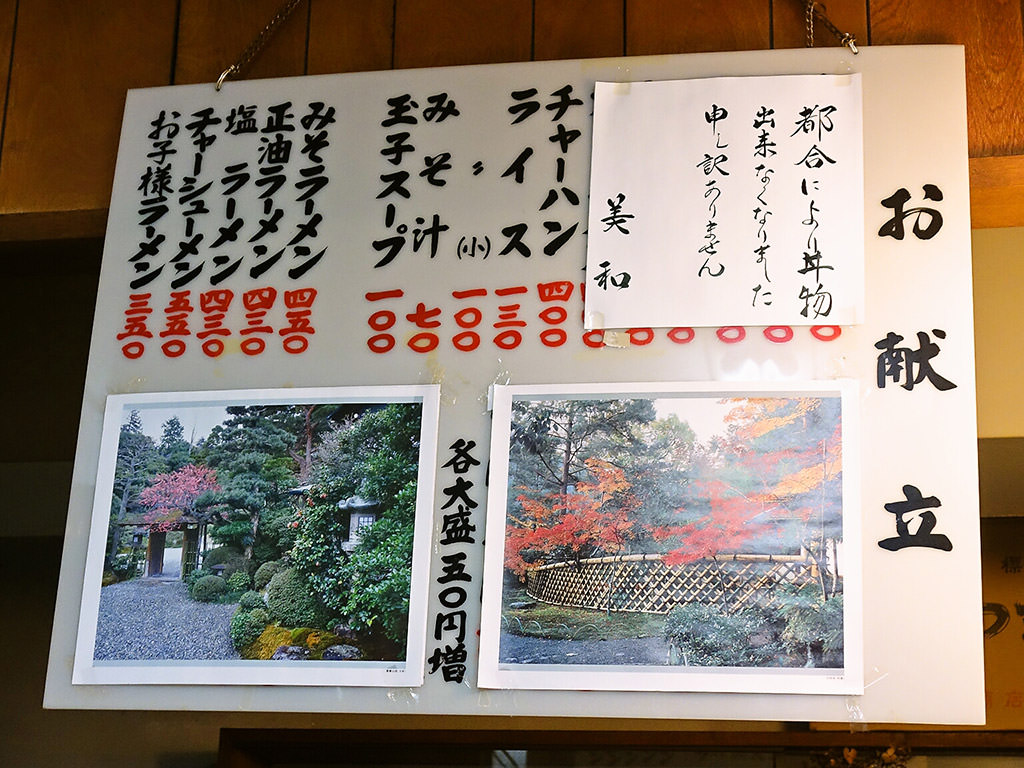 お献立
都合により丼物
出来なくなりました
申し訳ありません
美和
チャーハン 四〇〇
ライス 一三〇
〃 (小) 一〇〇
みそ汁 七〇
玉子スープ 一〇〇
みそラーメン 四五〇
正油ラーメン 四三〇
塩ラーメン 四三〇
チャーシューメン 五五〇
お子様ラーメン 三五〇
各大盛五〇円増